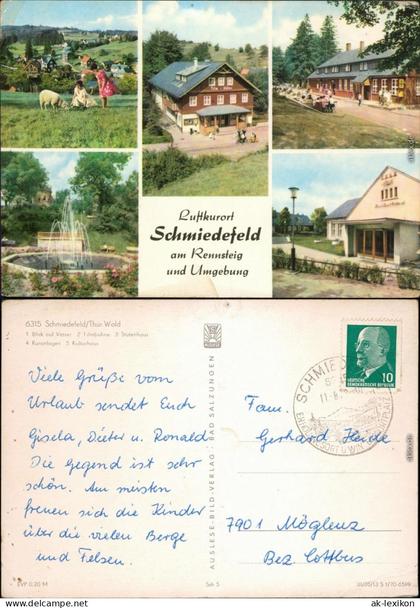 Luftkurort
Schmiedefeld
am Rennsteig
und Umgebung
6315 Schmiedefeld/Thür. Wald
1 Blick auf Vesser 2 Filmbühne 3 Stutenhaus
4 Kuranlagen 5 Kulturhaus
Viele Grüße vom
Urlaub sendet Euch
Gisela, Dieter u. Ronald
Die Gegend ist sehr
schön. Am meisten
freuen sich die Kinder
über die vielen Berge
und Felsen.
EVP 0.20 M
AUSLESE-BILD-VERLAG · BAD SALZUNGEN
DEUTSCHE
DEMOKRATISCHE REPUBLIK
10
SCHMIEDE
Fam.
Gerhard Heide
7901 Möglenz
Bez. Cottbus
ak-lexikon
© www.delcampe.net
ak-lexikon